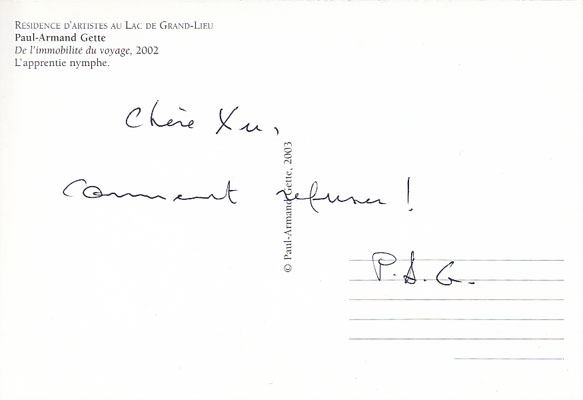 RÉSIDENCE D'ARTISTES AU LAC DE GRAND-LIEU
Paul-Armand Gette
De l'immobilité du voyage, 2002
L'apprentie nymphe.
Chère Xu,
comment refuser !
© Paul-Armand Gette, 2003
P.A.G.